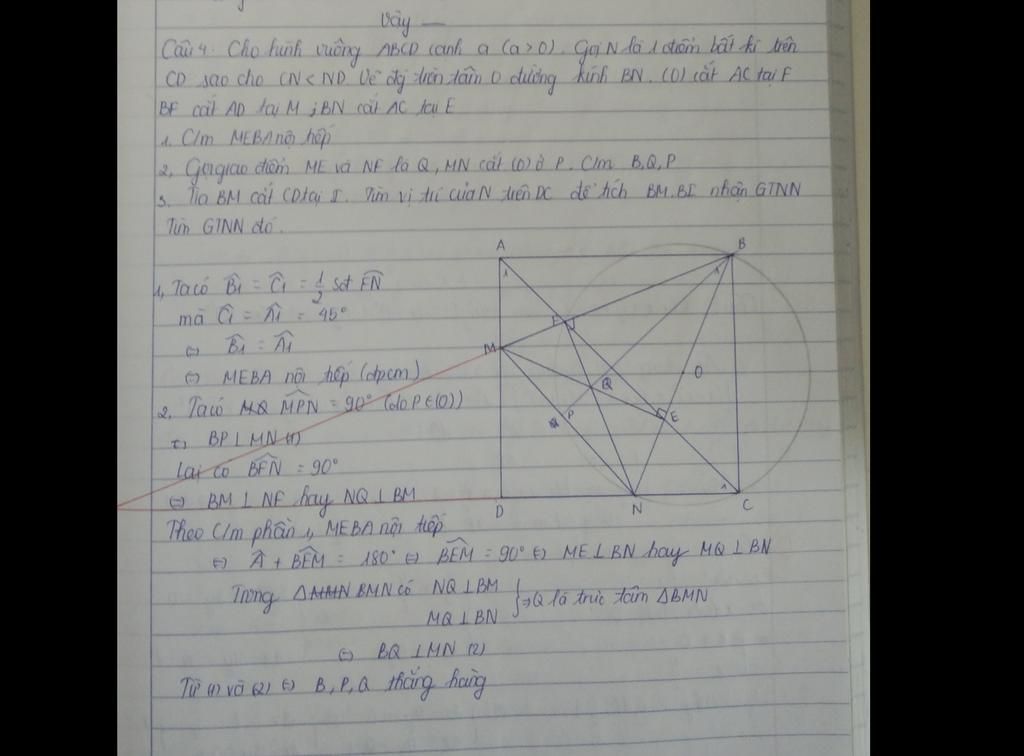 Vậy
Câu 4. Cho hình vuông ABCD cạnh a (a > 0). Gọi N là 1 điểm bất kì trên
CD sao cho CN < ND. Vẽ đg tròn tâm O đường kính BN. (O) cắt AC tại F
BF cắt AD tại M ; BN cắt AC tại E
1. C/m MEBA nội tiếp
2, Gọi giao điểm ME và NF là Q, MN cắt (O) ở P. C/m B, Q, P
3. Tia BM cắt CD tại I. Tìm vị trí của N trên DC để tích BM.BI nhận GTNN
Tìm GTNN đó.
1, Ta có B̂1 = Ĉ1 = 1/2 sđ FN
mà Ĉ1 = Â1 = 45°
⇔ B̂1 = Â1
⇔ MEBA nội tiếp (đpcm)
2. Ta có MPN = 90° (do P ∈ (O))
⇔ BP ⊥ MN (1)
Lại có BFN = 90°
⇔ BM ⊥ NF hay NQ ⊥ BM
Theo C/m phần 1, MEBA nội tiếp
⇔ Â + BEM = 180° ⇔ BEM = 90° ⇔ ME ⊥ BN hay MQ ⊥ BN
Trong Δ BMN có NQ ⊥ BM
MQ ⊥ BN
⇒ Q là trực tâm ΔBMN
⇔ BQ ⊥ MN (2)
Từ (1) và (2) ⇔ B, P, Q thẳng hàng
A
B
1
1
F
M
Q
O
P
E
1
D
N
C